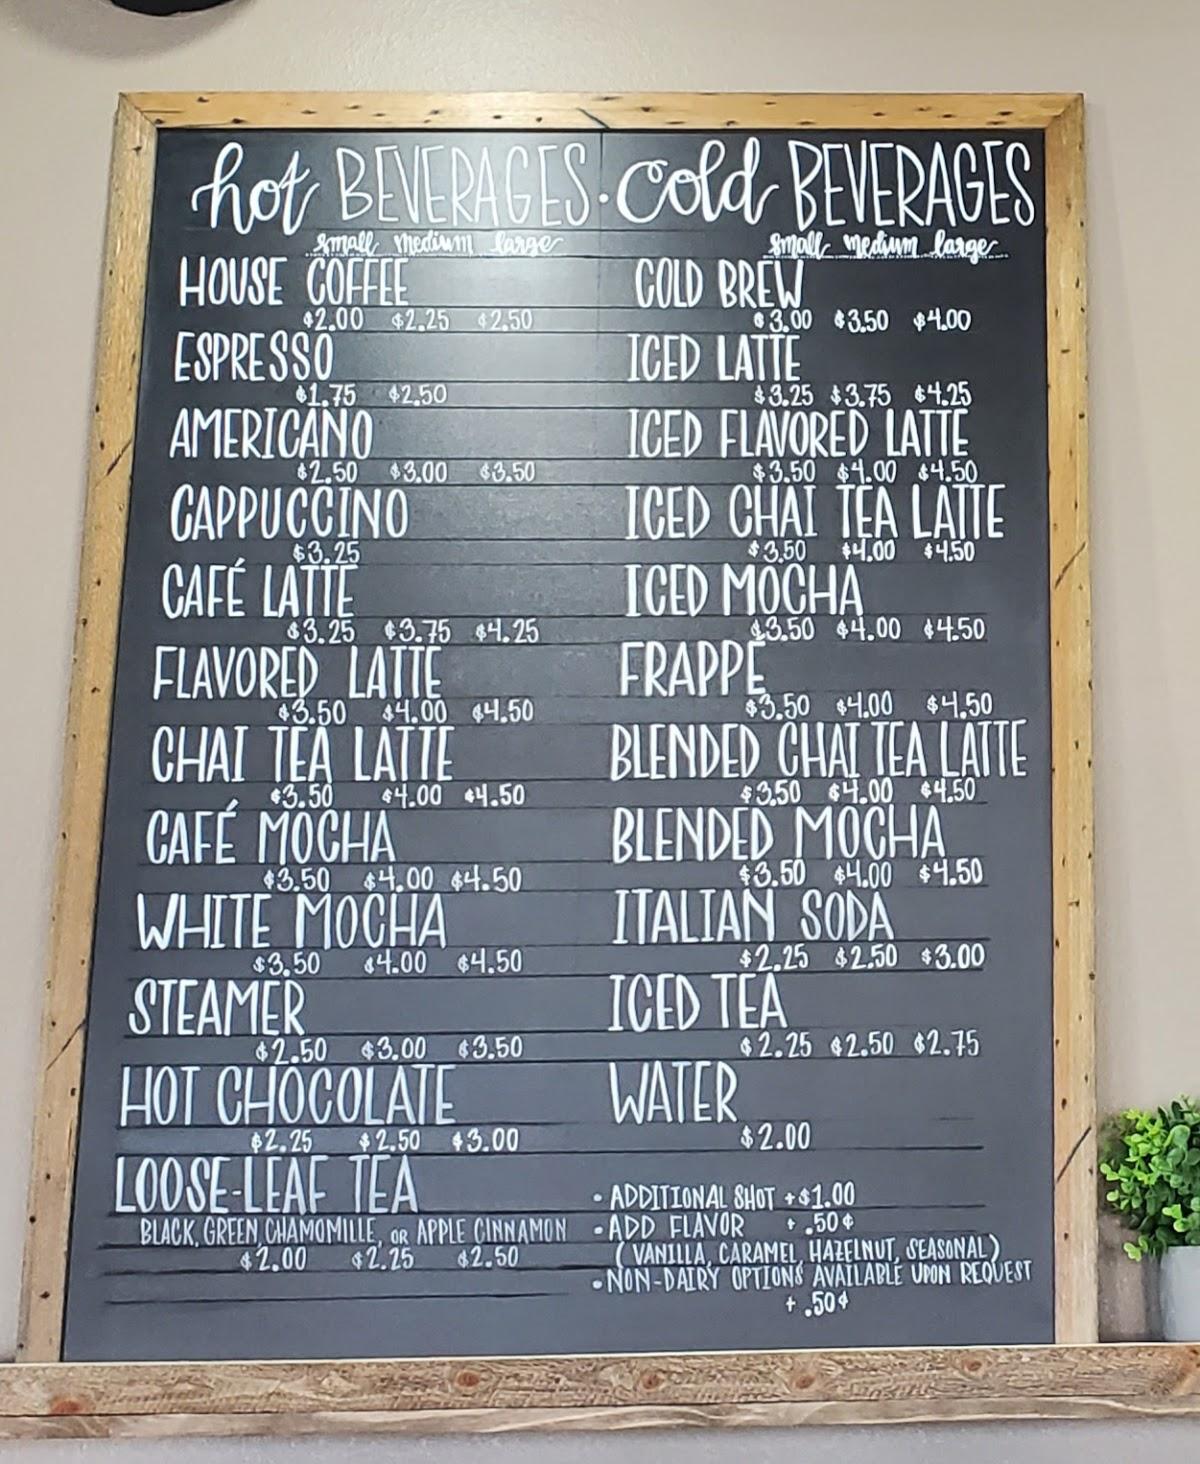 hot BEVERAGES · cold BEVERAGES
small medium large
HOUSE COFFEE
$2.00 $2.25 $2.50
ESPRESSO
$1.75 $2.50
AMERICANO
$2.50 $3.00 $3.50
CAPPUCCINO
$3.25
CAFÉ LATTE
$3.25 $3.75 $4.25
FLAVORED LATTE
$3.50 $4.00 $4.50
CHAI TEA LATTE
$3.50 $4.00 $4.50
CAFÉ MOCHA
$3.50 $4.00 $4.50
WHITE MOCHA
$3.50 $4.00 $4.50
STEAMER
$2.50 $3.00 $3.50
HOT CHOCOLATE
$2.25 $2.50 $3.00
LOOSE-LEAF TEA
BLACK, GREEN, CHAMOMILLE, OR APPLE CINNAMON
$2.00 $2.25 $2.50
small medium large
COLD BREW
$3.00 $3.50 $4.00
ICED LATTE
$3.25 $3.75 $4.25
ICED FLAVORED LATTE
$3.50 $4.00 $4.50
ICED CHAI TEA LATTE
$3.50 $4.00 $4.50
ICED MOCHA
$3.50 $4.00 $4.50
FRAPPÉ
$3.50 $4.00 $4.50
BLENDED CHAI TEA LATTE
$3.50 $4.00 $4.50
BLENDED MOCHA
$3.50 $4.00 $4.50
ITALIAN SODA
$2.25 $2.50 $3.00
ICED TEA
$2.25 $2.50 $2.75
WATER
$2.00
• ADDITIONAL SHOT +$1.00
• ADD FLAVOR + .50¢
(VANILLA, CARAMEL, HAZELNUT, SEASONAL)
• NON-DAIRY OPTIONS AVAILABLE UPON REQUEST
+ .50¢